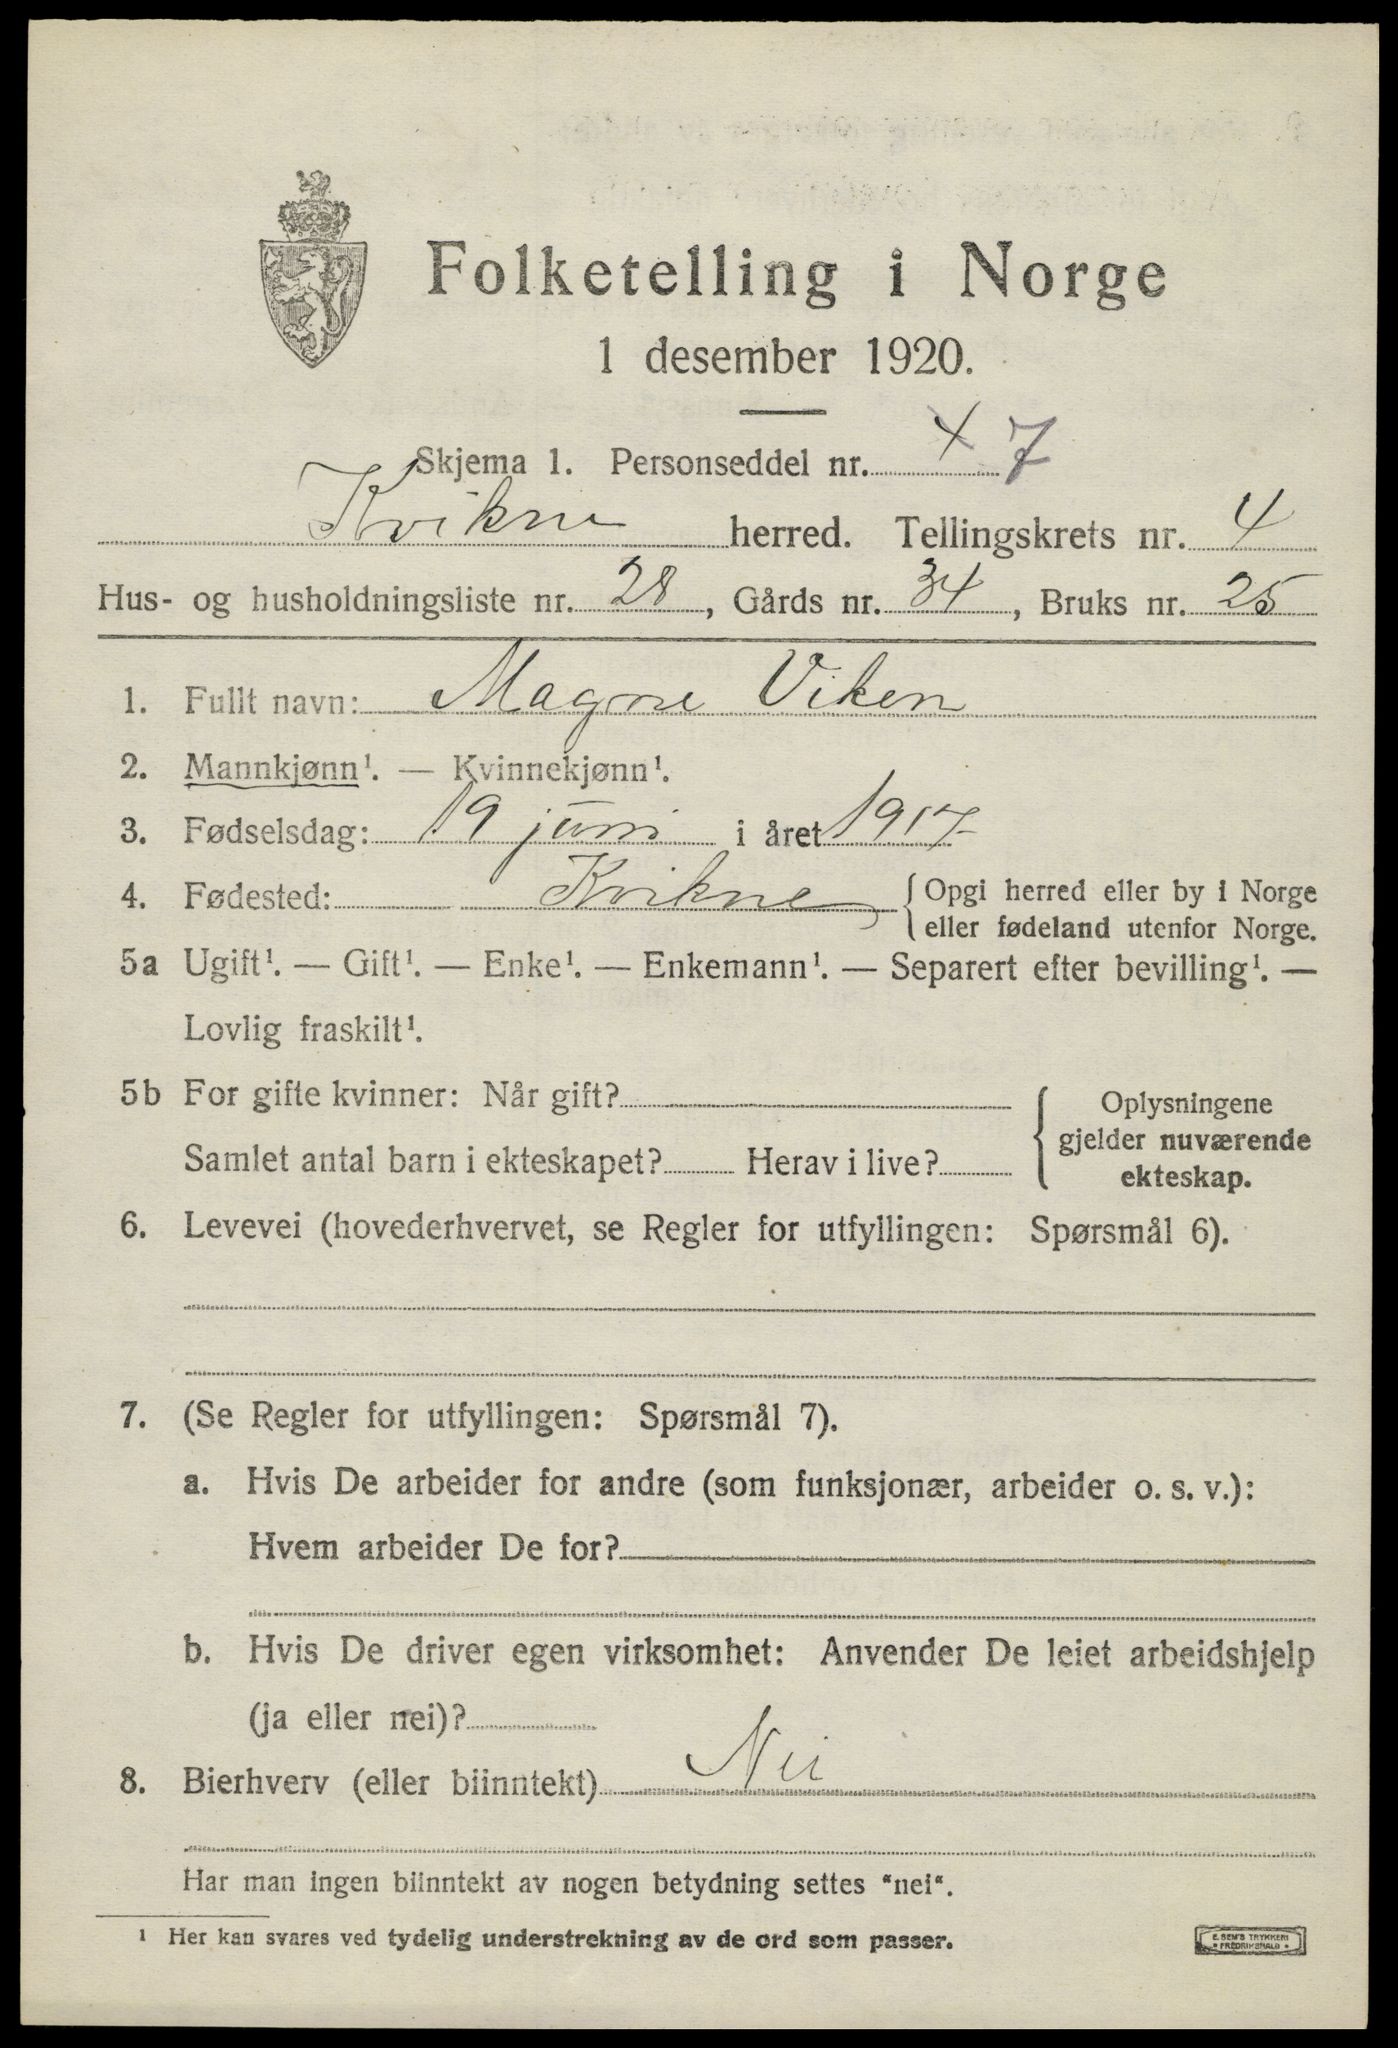 Folketelling i Norge
1 desember 1920.
Skjema 1. Personseddel nr. 4 7
Kvikne herred. Tellingskrets nr. 4
Hus- og husholdningsliste nr. 28, Gårds nr. 34, Bruks nr. 25
1. Fullt navn: Magne Viken
2. Mannkjønn¹. — Kvinnekjønn¹.
3. Fødselsdag: 19 juni i året 1917
4. Fødested: Kvikne { Opgi herred eller by i Norge
eller fødeland utenfor Norge.
5a Ugift¹. — Gift¹. — Enke¹. — Enkemann¹. — Separert efter bevilling¹. —
Lovlig fraskilt¹.
5b For gifte kvinner: Når gift?
Samlet antal barn i ekteskapet? Herav i live?
Oplysningene
gjelder nuværende
ekteskap.
6. Levevei (hovederhvervet, se Regler for utfyllingen: Spørsmål 6).
7. (Se Regler for utfyllingen: Spørsmål 7).
a. Hvis De arbeider for andre (som funksjonær, arbeider o. s. v.):
Hvem arbeider De for?
b. Hvis De driver egen virksomhet: Anvender De leiet arbeidshjelp
(ja eller nei)?
8. Bierhverv (eller biinntekt) Nei
Har man ingen biinntekt av nogen betydning settes "nei".
¹ Her kan svares ved tydelig understrekning av de ord som passer.
E. SEM'S TRYKKERI
FREDRIKSHALD